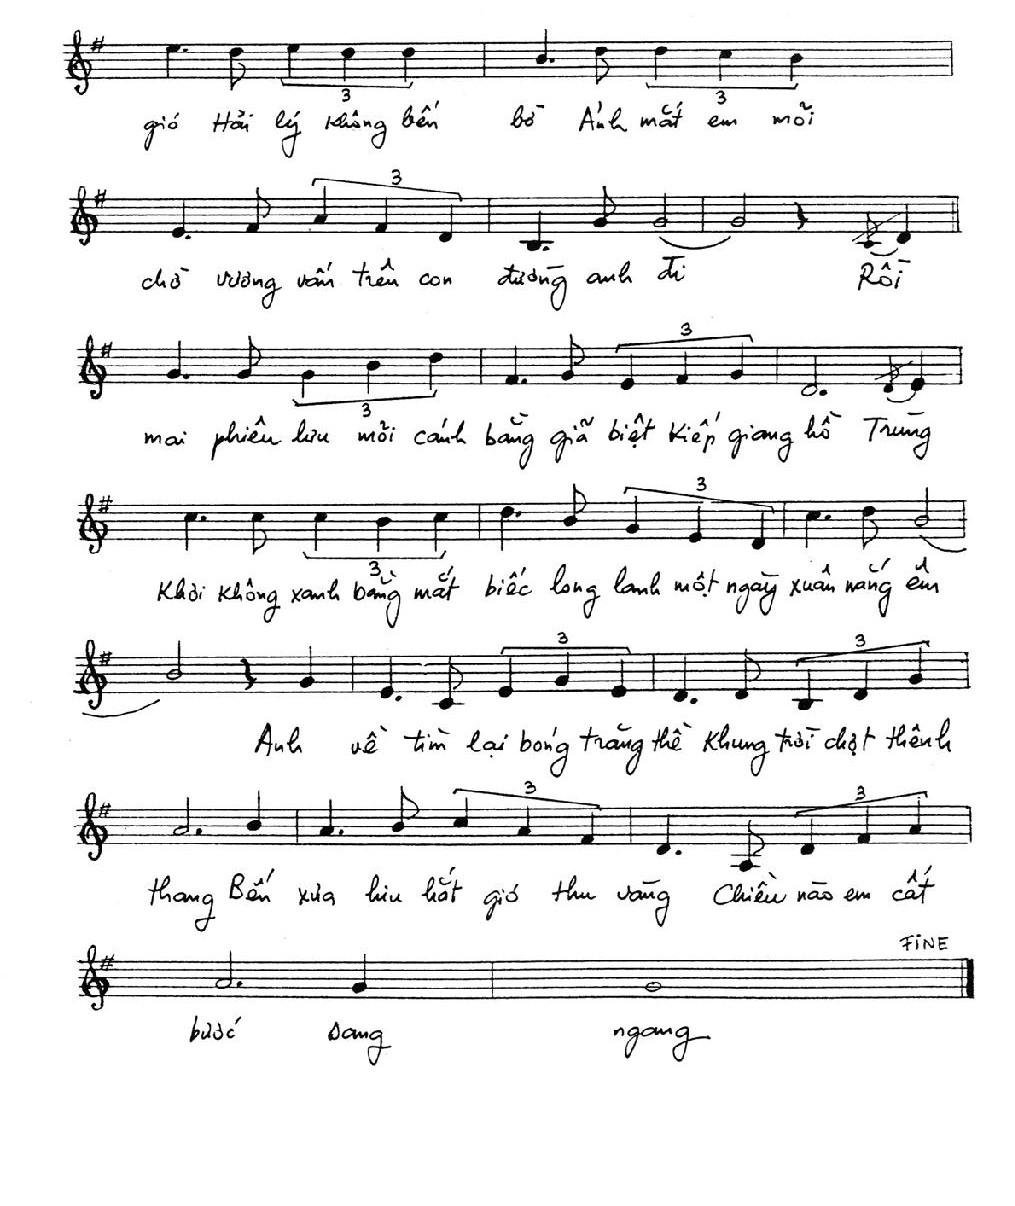 3 3
gió Hải lý không bến bờ Ánh mắt em mỗi
3
chờ vương vấn trên con đường anh đi Rồi
3 3
mai phiêu lưu mỗi cánh bằng giã biệt kiếp giang hồ Trùng
3 3
Khơi không xanh bằng mắt biếc long lanh một ngày xuân nắng êm
3 3
Anh về tìm lại bóng trăng thề Khung trời chợt thênh
3 3
thang Bến xưa hiu hắt gió thu vàng Chiều nào em cất
FINE
bước sang ngang